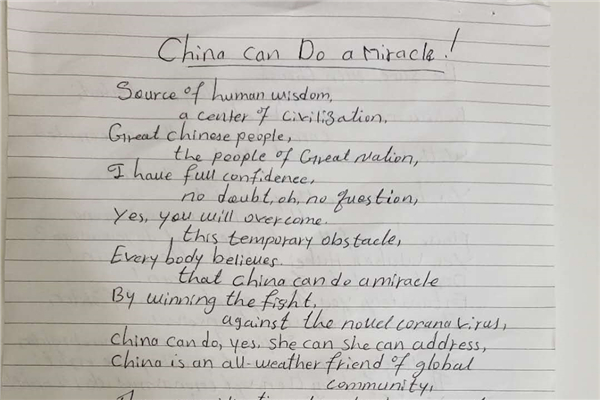 China can Do a Miracle!
Source of human wisdom,
a center of Civilization,
Great chinese people,
the people of Great Nation,
I have full confidence,
no doubt, oh, no question,
Yes, you will overcome.
this temporary obstacle,
Every body believes.
that China can do a miracle
By winning the fight,
against the novel corona virus,
China can do, yes, she can she can address,
China is an all-weather friend of global
community,